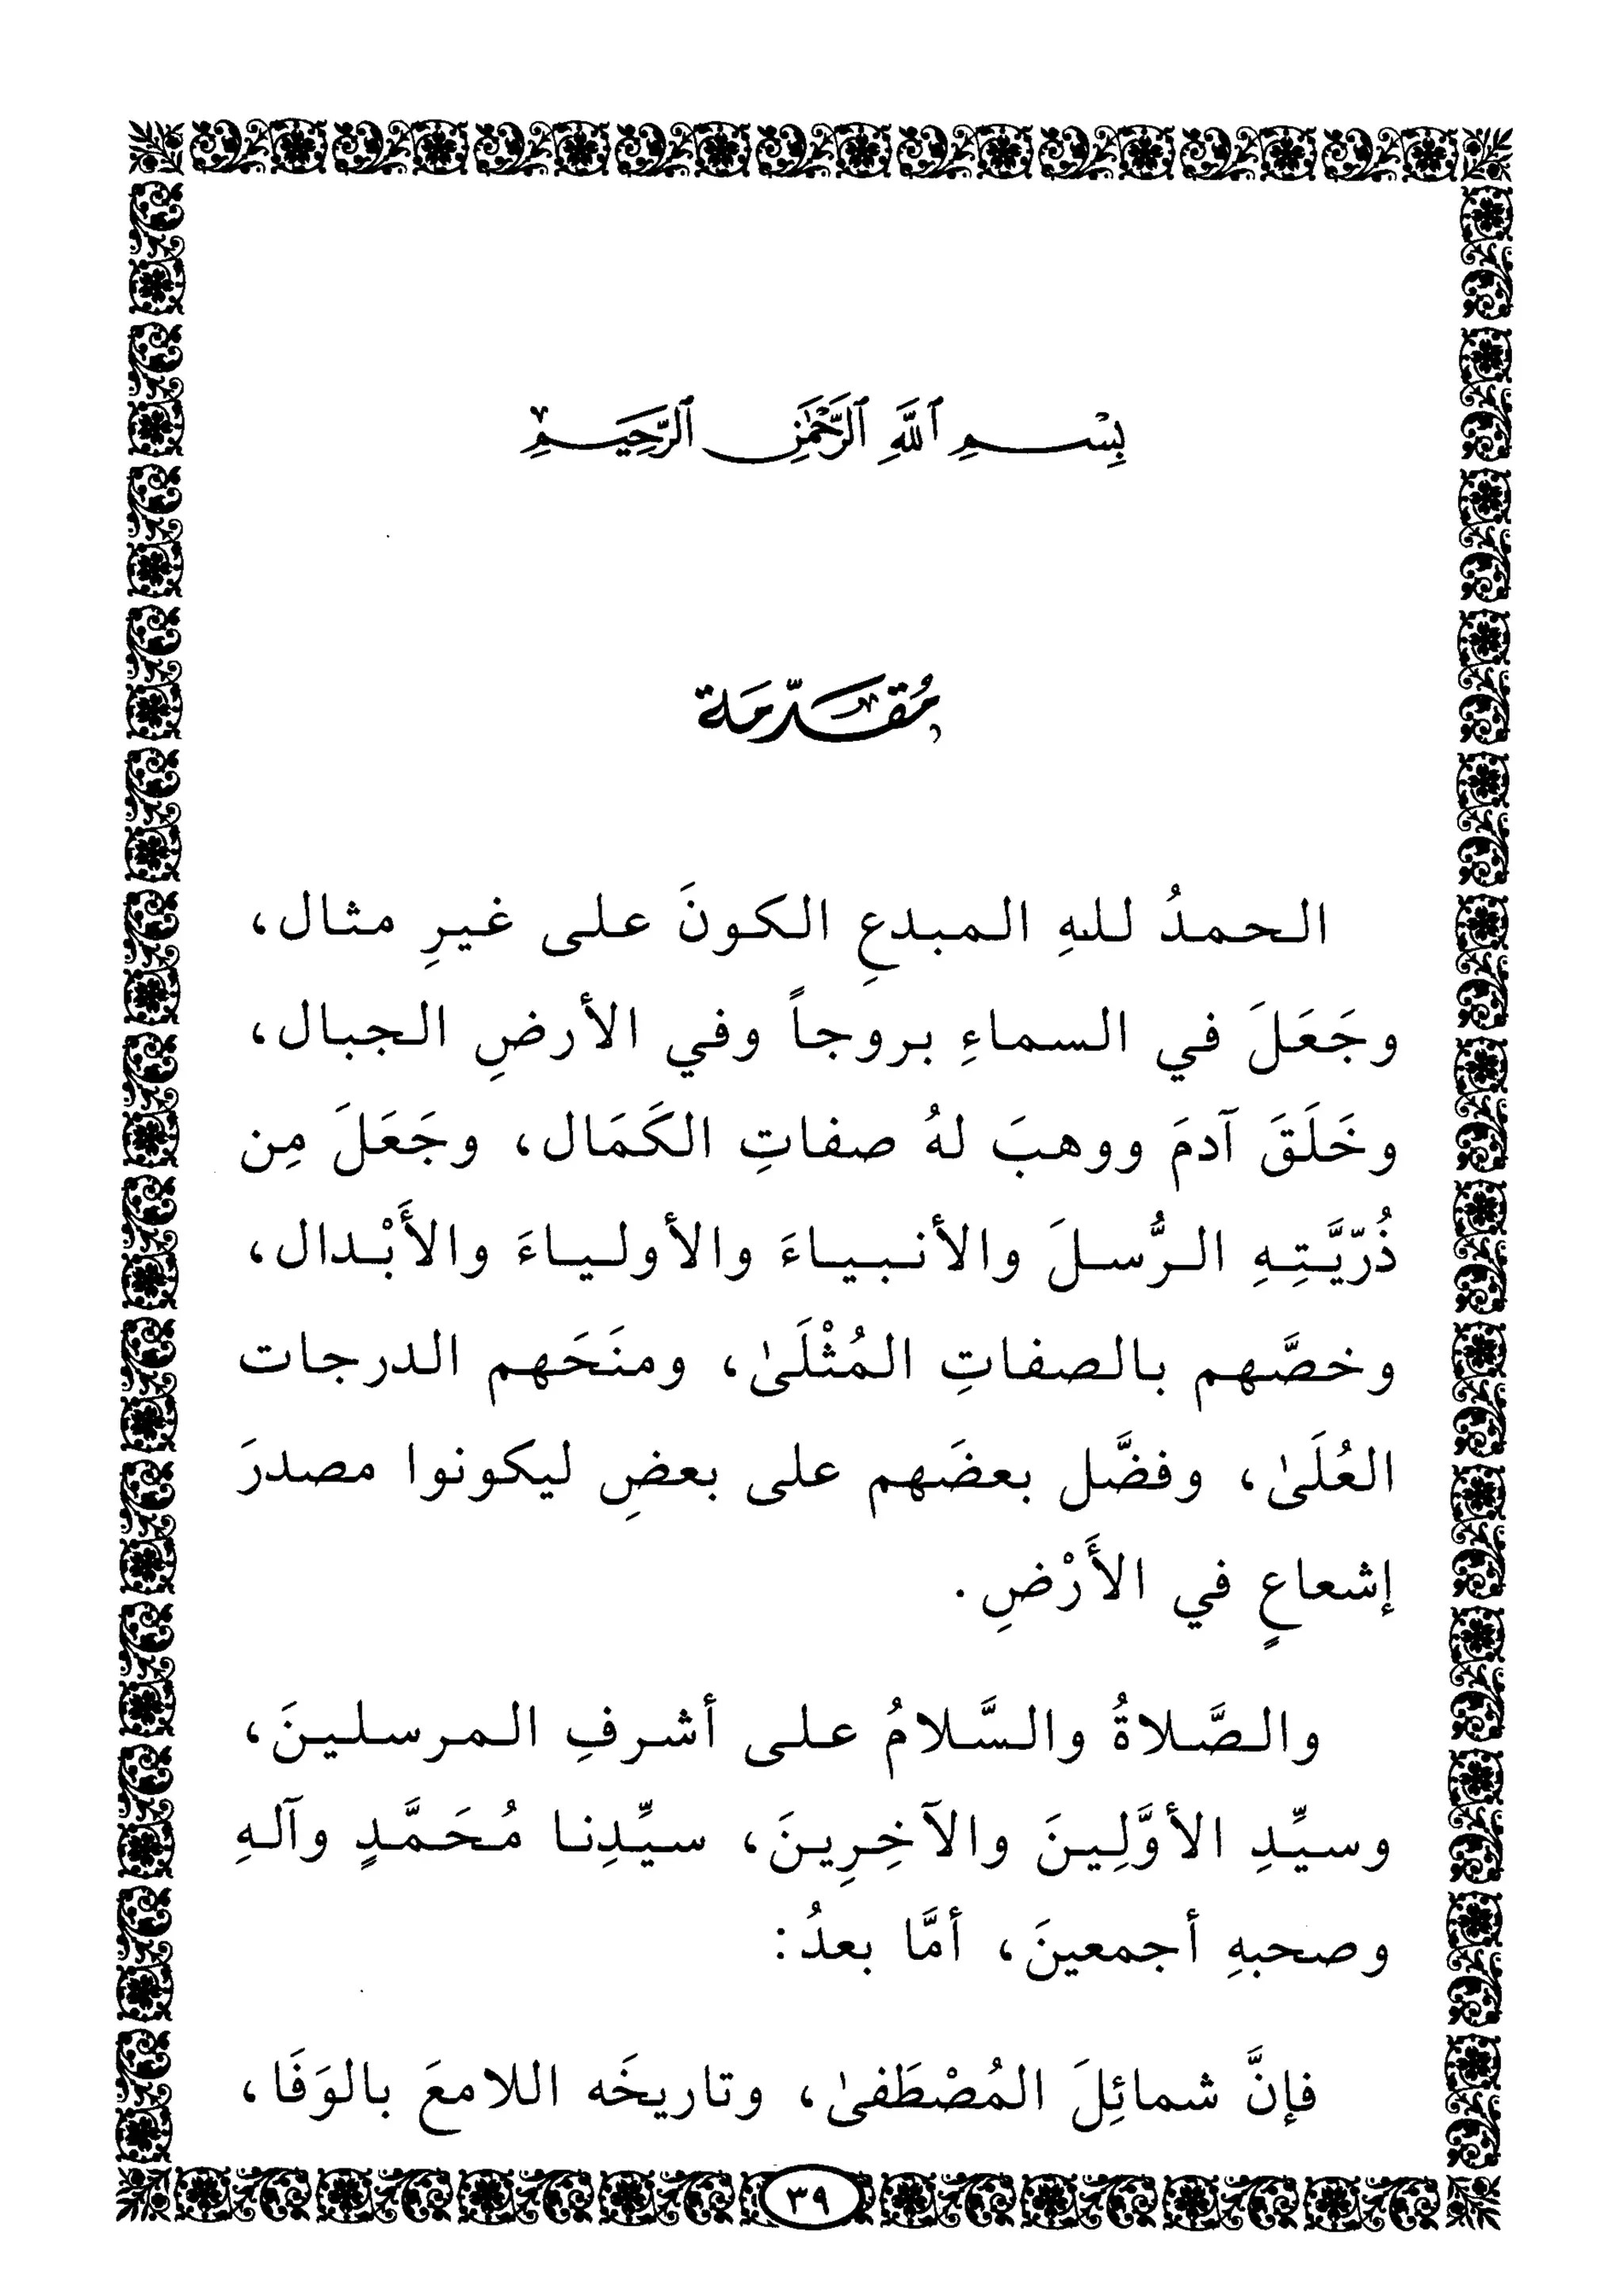 بِسْمِ ٱللَّهِ ٱلرَّحْمَٰنِ ٱلرَّحِيمِ
مُقَدِّمَة
الحمدُ للهِ المبدعِ الكونَ على غيرِ مثال،
وجَعَلَ في السماءِ بروجاً وفي الأرضِ الجبال،
وخَلَقَ آدمَ ووهبَ لهُ صفاتِ الكَمَال، وجَعَلَ مِن
ذُرّيَّتِهِ الرُّسلَ والأنبياءَ والأولياءَ والأَبْدال،
وخصَّهم بالصفاتِ المُثْلَىٰ، ومنَحَهم الدرجات
العُلَىٰ، وفضَّل بعضَهم على بعضٍ ليكونوا مصدرَ
إشعاعٍ في الأَرْضِ.
والصَّلاةُ والسَّلامُ على أشرفِ المرسلينَ،
وسيِّدِ الأوَّلِينَ والآخِرِينَ، سيِّدِنا مُحَمَّدٍ وآلهِ
وصحبهِ أجمعينَ، أمَّا بعدُ:
فإنَّ شمائِلَ المُصْطَفىٰ، وتاريخَه اللامعَ بالوَفَا،
٣٩